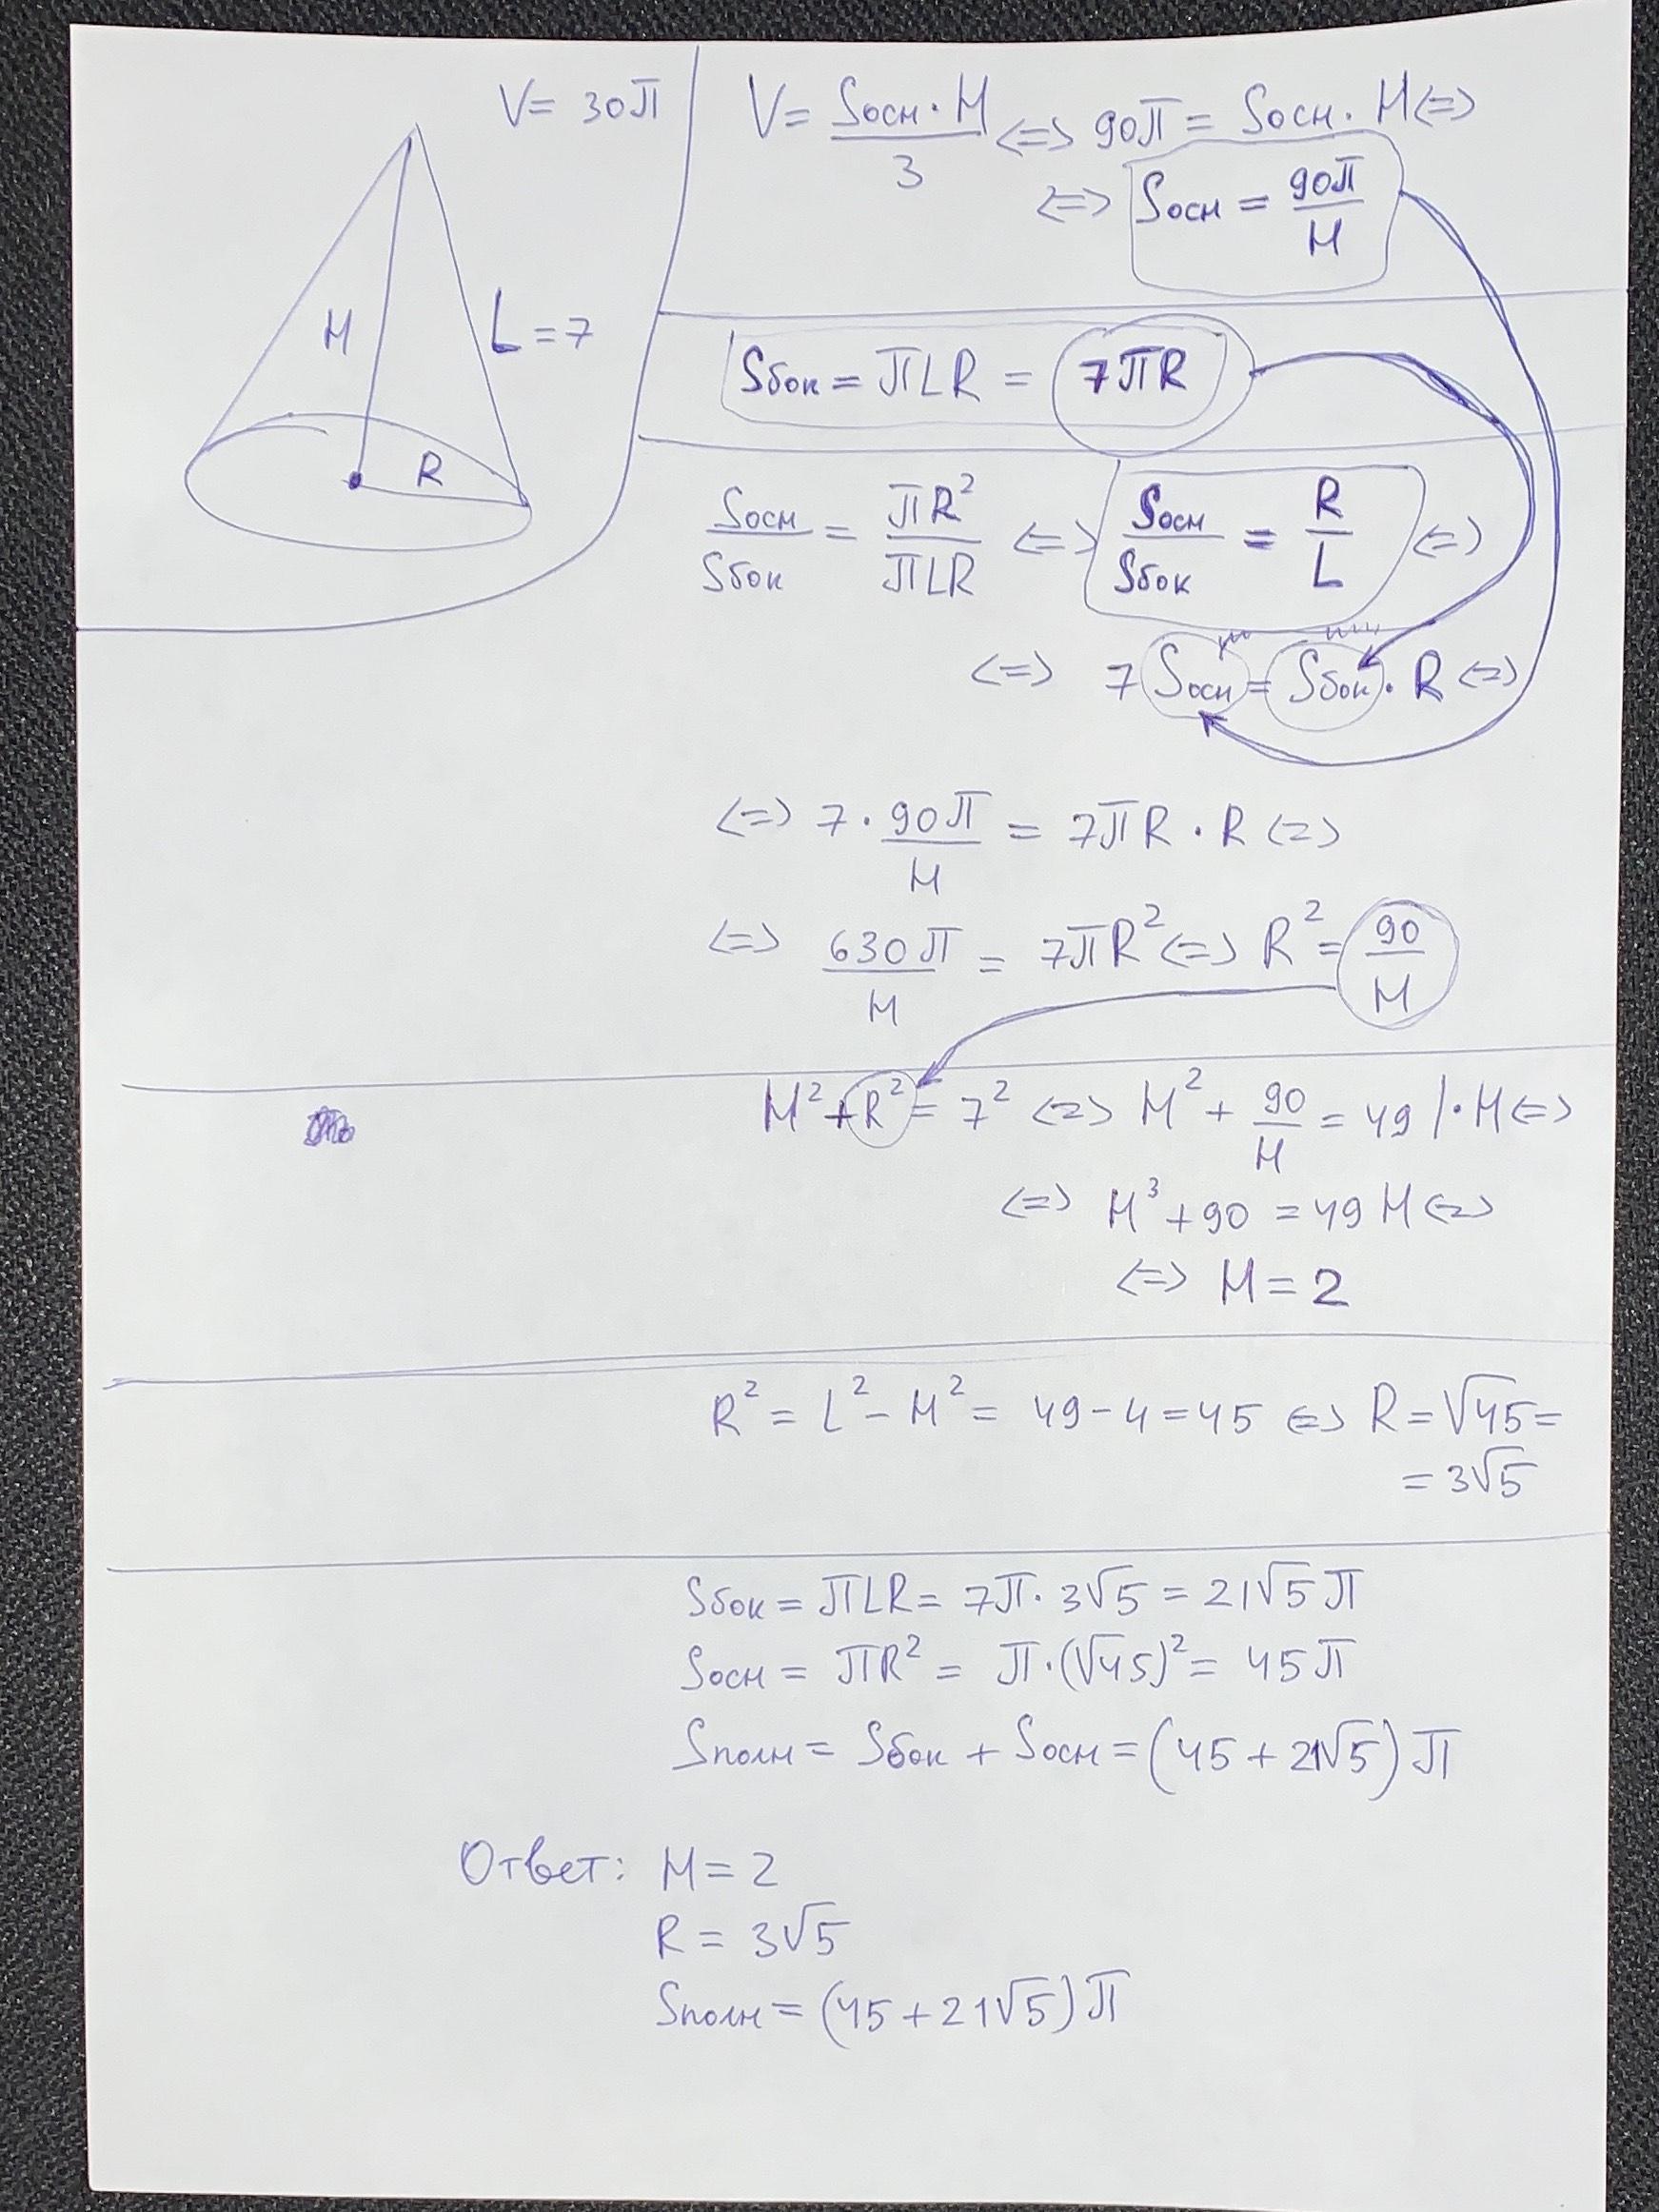 V = 30π
H
L = 7
R
V = Sосн · H / 3 <=> 90π = Sосн · H <=>
<=> Sосн = 90π / H
Sбок = πLR = 7πR
Sосн / Sбок = πR² / πLR <=> Sосн / Sбок = R / L <=>
<=> 7 Sосн = Sбок · R <=>
<=> 7 · 90π / H = 7πR · R <=>
<=> 630π / H = 7πR² <=> R² = 90 / H
H² + R² = 7² <=> H² + 90 / H = 49 | · H <=>
<=> H³ + 90 = 49 H <=>
<=> H = 2
R² = L² - H² = 49 - 4 = 45 <=> R = √45 =
= 3√5
Sбок = πLR = 7π · 3√5 = 21√5 π
Sосн = πR² = π · (√45)² = 45π
Sполн = Sбок + Sосн = (45 + 21√5) π
Ответ: H = 2
R = 3√5
Sполн = (45 + 21√5) π